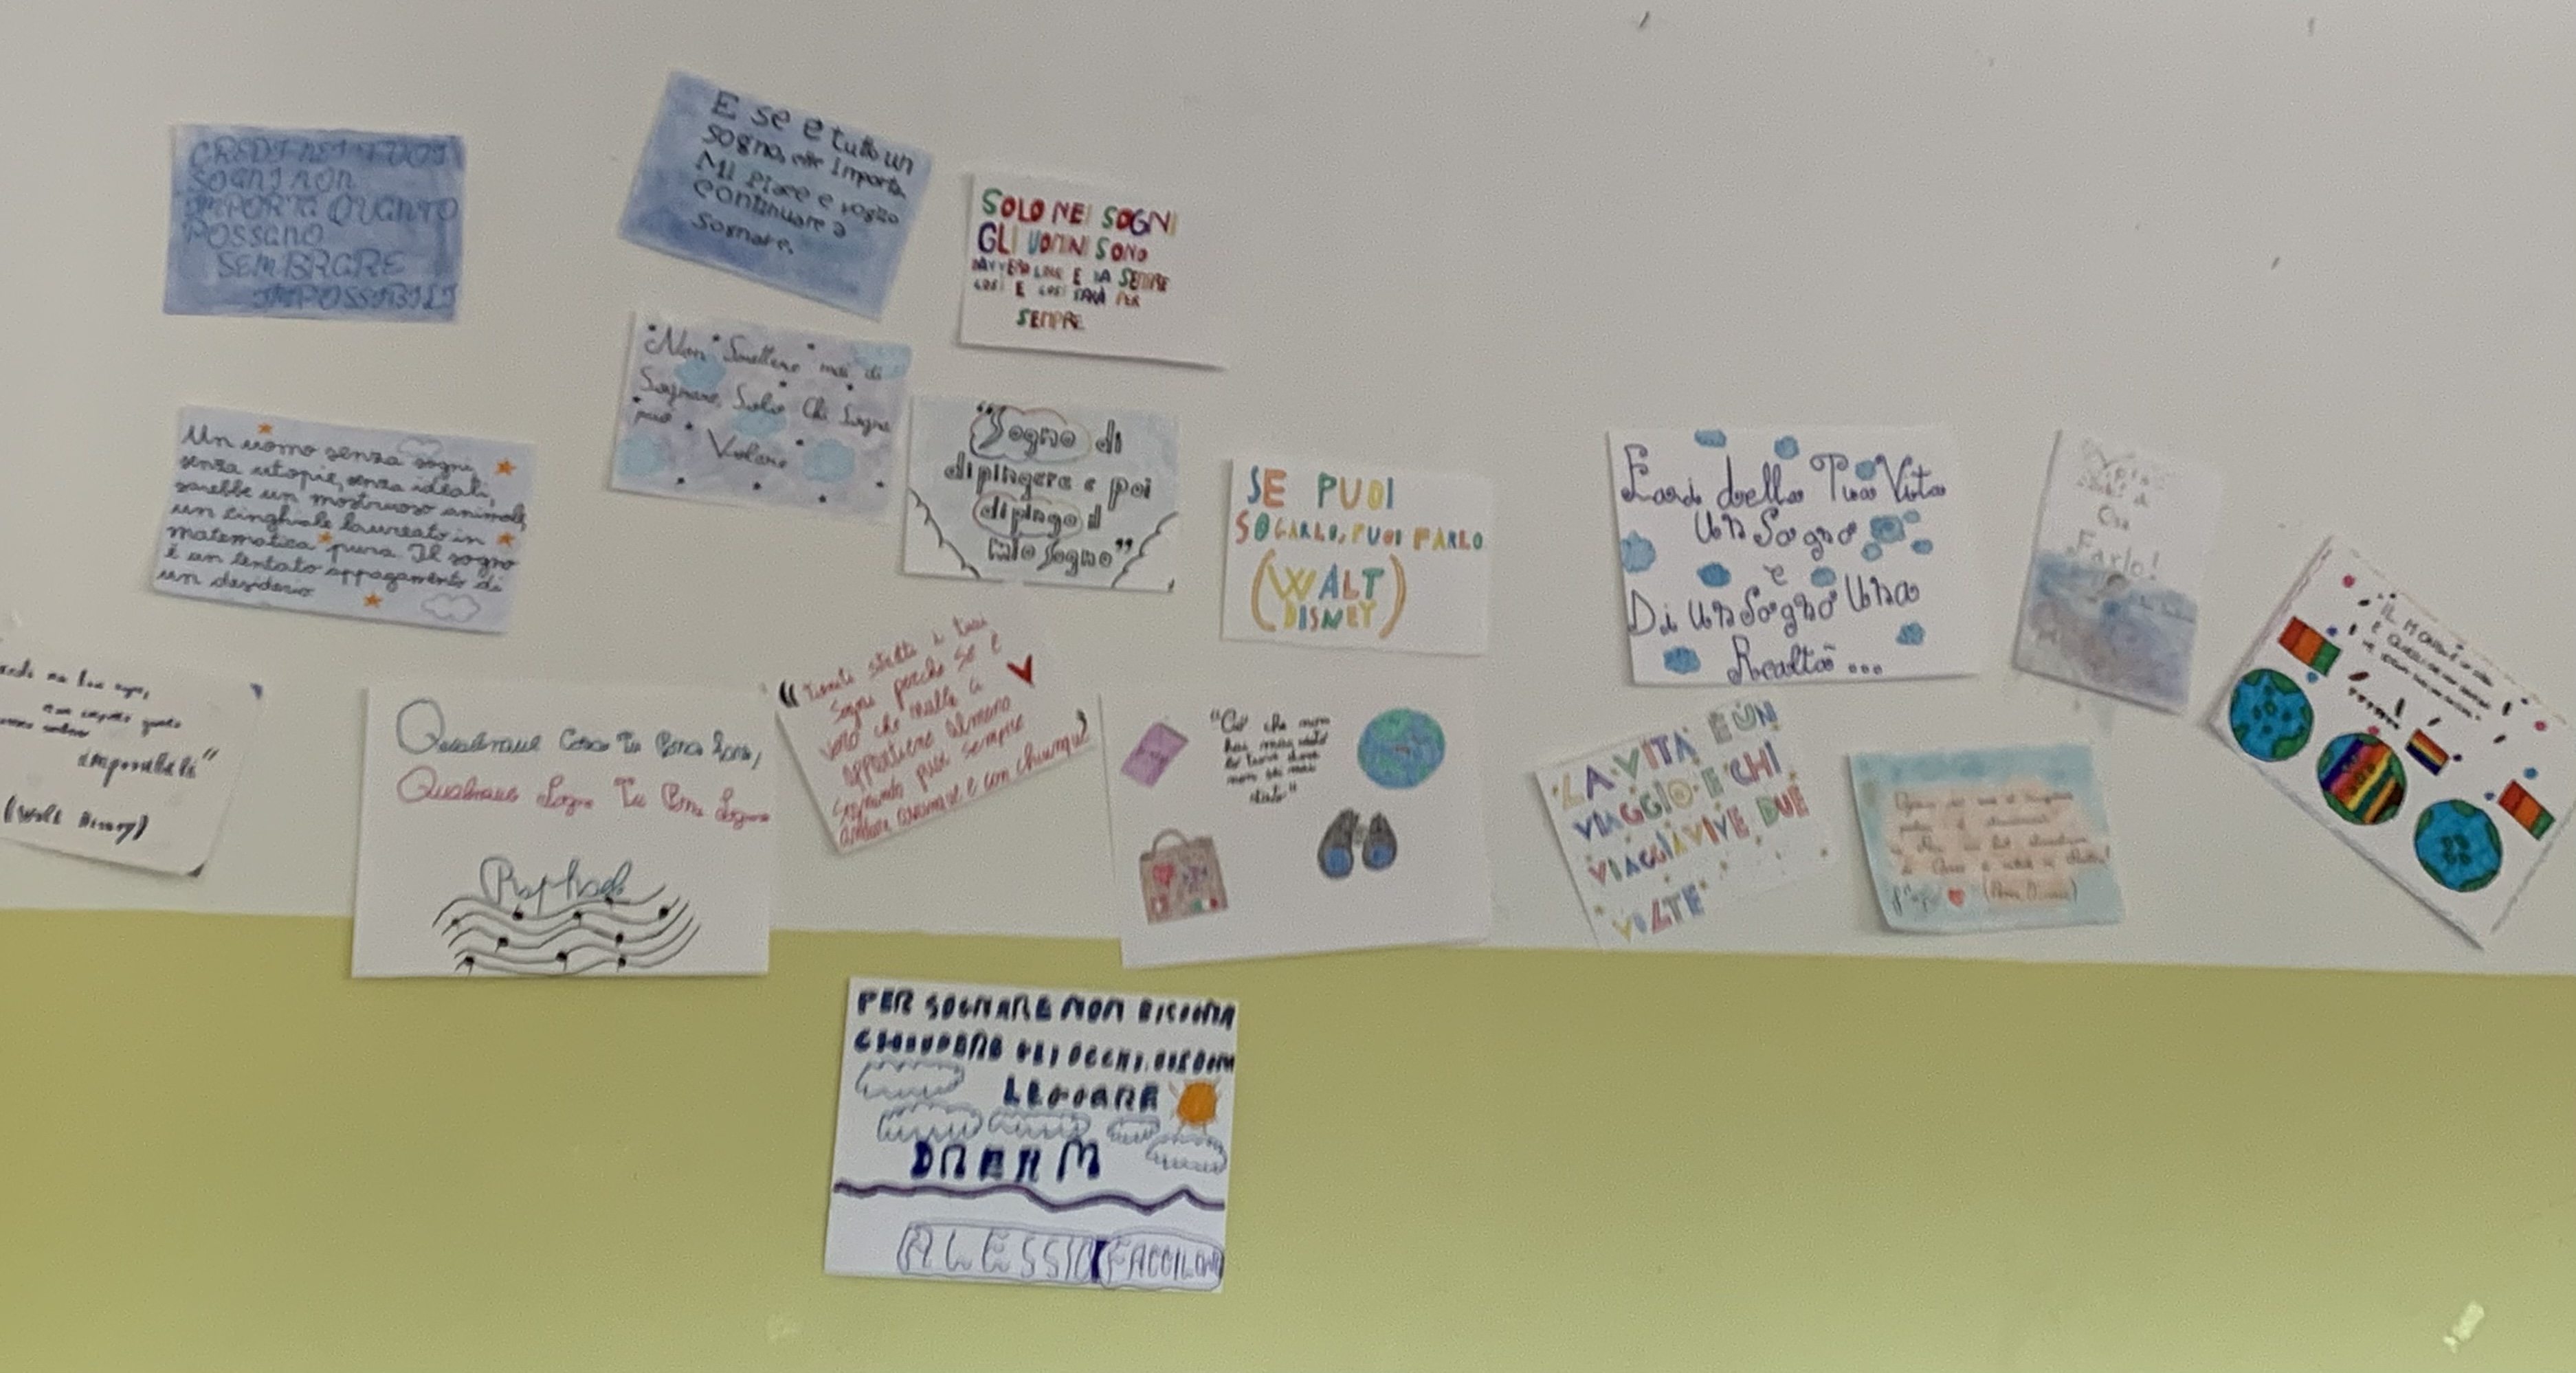 CREDI NEI TUOI
SOGNI NON
IMPORTA QUANTO
POSSANO
SEMBRARE
IMPOSSIBILI
E se è tutto un
sogno, che importa.
MI piace e voglio
continuare a
sognare.
SOLO NEI SOGNI
GLI UOMINI SONO
DAVVERO LIBERI E DA SEMPRE
COSÌ E COSÌ SARÀ PER
SEMPRE
Non Smettere mai di
Sognare, Solo Chi Sogna
può
Volare
Un uomo senza sogni,
senza utopie, senza ideali,
sarebbe un mostruoso animale,
un cinghiale laureato in
matematica pura. Il sogno
è un tentato appagamento di
un desiderio
"Sogno di
dipingere e poi
dipingo il
mio sogno"
SE PUOI
SOGARLO, PUOI FARLO
(WALT
DISNEY)
Fai della Tua Vita
Un Sogno
e
Di Un Sogno Una
Realtà ...
Farlo!
impossibili"
(Walt Disney)
Qualunque Cosa Tu Possa
Qualunque Sogno Tu Possa
Raphael
"Tieniti stretti i tuoi
sogni perché se è
vero che nulla ci
appartiene almeno
sognando puoi sempre
andare ovunque e con chiunque"
"Ciò che non
hai mai visto
lo trovi dove
non sei mai
stato"
LA VITA È UN
VIAGGIO E CHI
VIAGGIA VIVE DUE
VOLTE
IL MONDO
PER SOGNARE NON BISOGNA
CHIUDERE GLI OCCHI. BISOGNA
LEGGERE
DREAM
ALESSIO